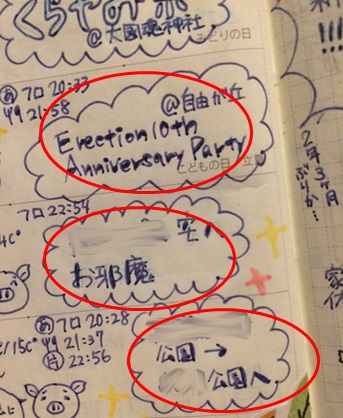 くらやみ祭
@大國魂神社
みどりの日
㋐ フロ 20:33
21:58
@自由が丘
Erection 10th
Anniversary Party
こどもの日 立夏
フロ 22:54
宅へ
お邪魔
㋐ フロ 20:28
/15℃
21:37
22:56
公園→
公園へ
!!!
2年3ヶ月
ぶりか…